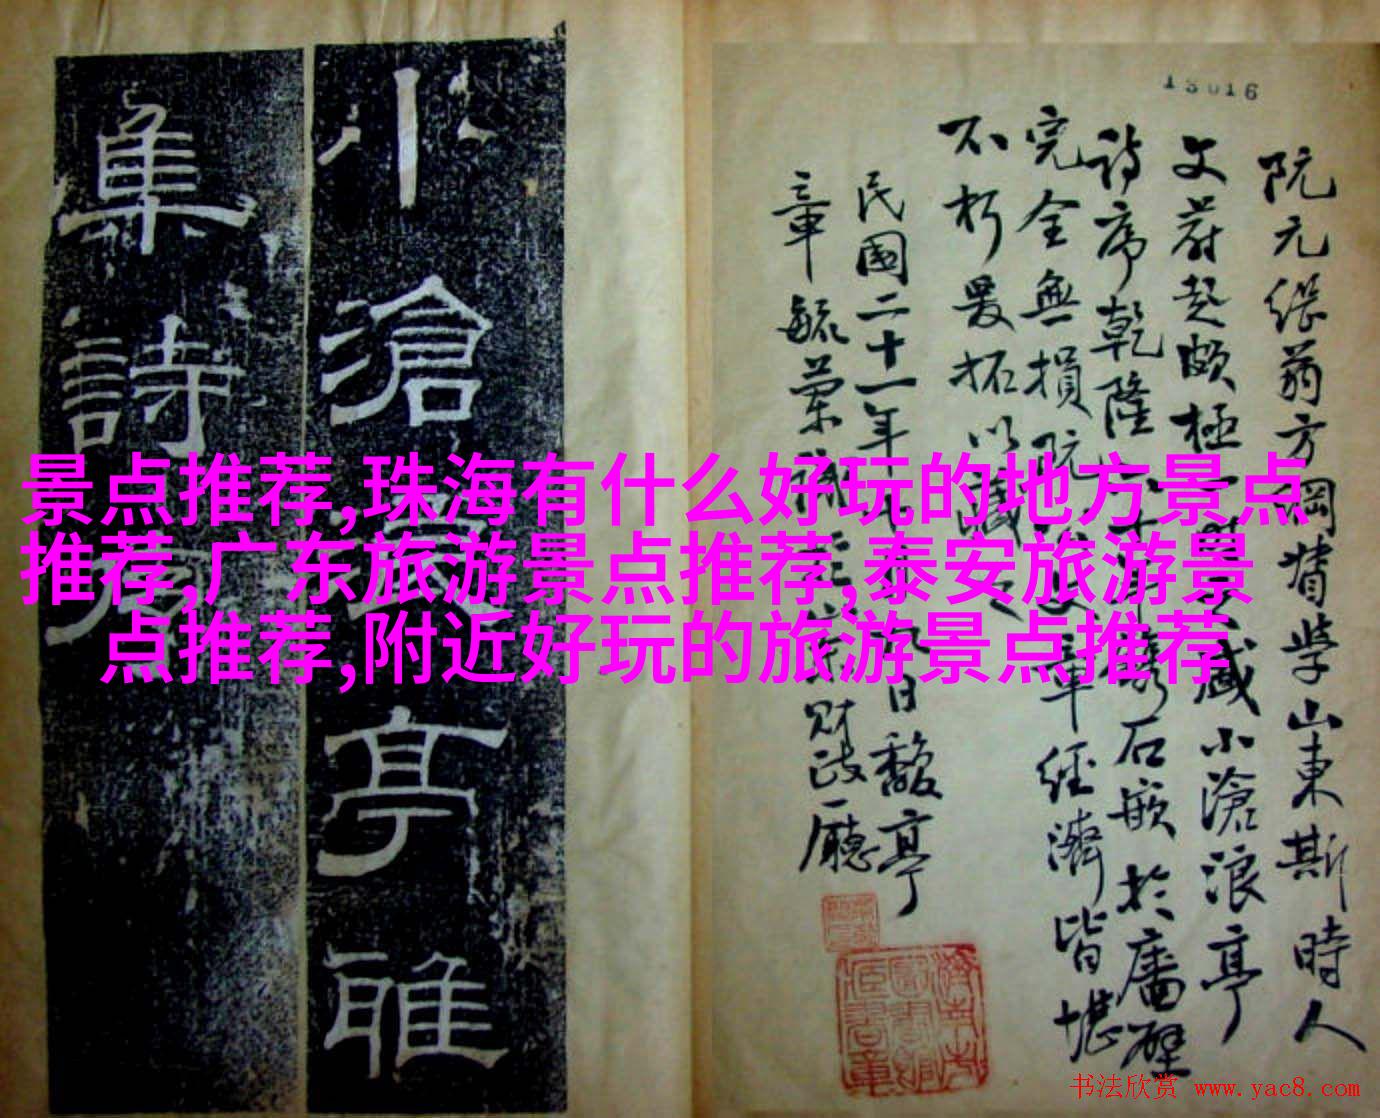 13016
阮元繼翁方綱督學山東斯時人
文蔚起頗極一
藏小滄浪亭
詩序乾隆
石嵌於廧壁
完全無損阮
文章經濟皆堪
不朽爰拓以誌
民國二十一年
日馥亭
章毓蘭
財政廳
小滄
亭雅
集詩
景点推荐,珠海有什么好玩的地方景点
推荐,广东旅游景点推荐,泰安旅游景
点推荐,附近好玩的旅游景点推荐
书法欣赏 www.yac8.com